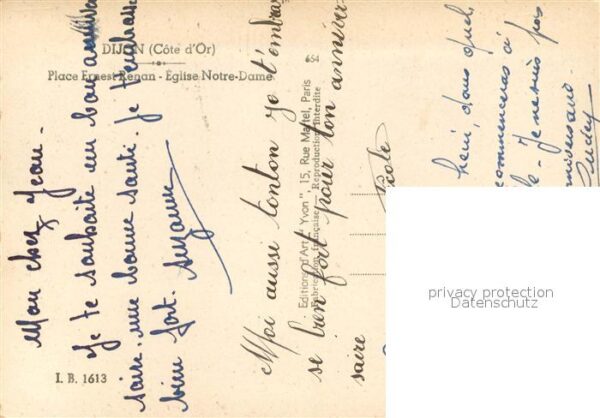 DIJON (Côte d'Or)
Place Ernest Renan - Église Notre-Dame
Mon cher Jean.
Je te souhaite un bon anniver
saire, une bonne santé. Je t'embrasse
bien fort. Suzanne
Moi aussi tonton je t'embras
se bien fort pour ton anniver
saire
Editions d'Art "Yvon", 15, Rue Martel, Paris
Fabrication Française - Reproduction Interdite
École
hein, dans quel
commenceras à
Je ne suis pas
I. B. 1613
privacy protection
Datenschutz